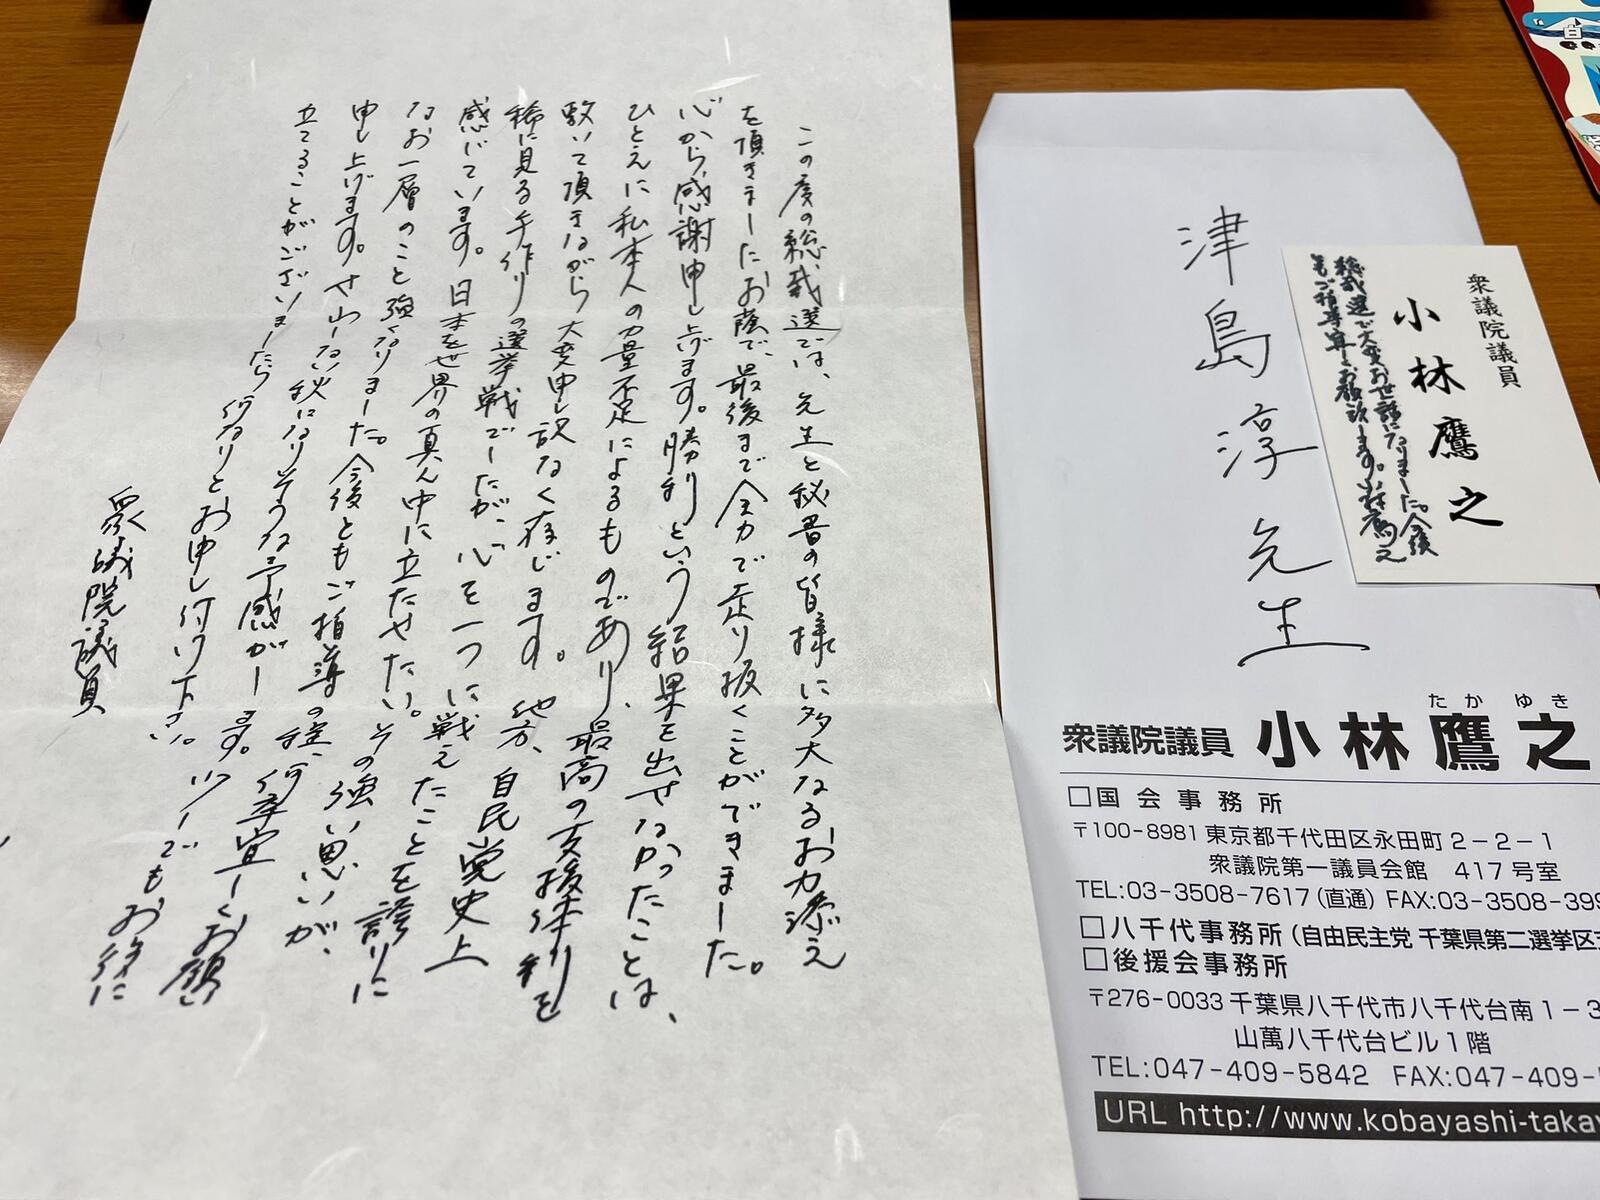 この度の総裁選では、先生と秘書の皆様に多大なるお力添え
を頂きましたお蔭で、最後まで全力で走り抜くことができました。
心から感謝申し上げます。勝利という結果を出せなかったことは、
ひとえに私本人の力量不足によるものであり、最高の支援体制を
敷いて頂きながら大変申し訳なく存じます。地方、自民党史上
稀に見る手作りの選挙戦でしたが、心を一つに戦えたことを誇りに
感じています。日本を世界の真ん中に立たせたい。その強い思いが、
なお一層のこと強くなりました。今後ともご指導の程、何卒宜しくお願い
申し上げます。せわしない秋になりそうな予感がします。いつでもお役に
立てることがございましたら何なりとお申し付け下さい。
衆議院議員
津島淳先生
衆議院議員
小林鷹之
総裁選で大変お世話になりました。今後
もご指導宜しくお願い致します。小林鷹之
たか ゆき
衆議院議員 小林鷹之
□国会事務所
〒100-8981 東京都千代田区永田町2-2-1
衆議院第一議員会館 417号室
TEL:03-3508-7617(直通) FAX:03-3508-399
□八千代事務所(自由民主党 千葉県第二選挙区
□後援会事務所
〒276-0033 千葉県八千代市八千代台南1-3
山萬八千代台ビル1階
TEL:047-409-5842 FAX:047-409-
URL http://www.kobayashi-taka